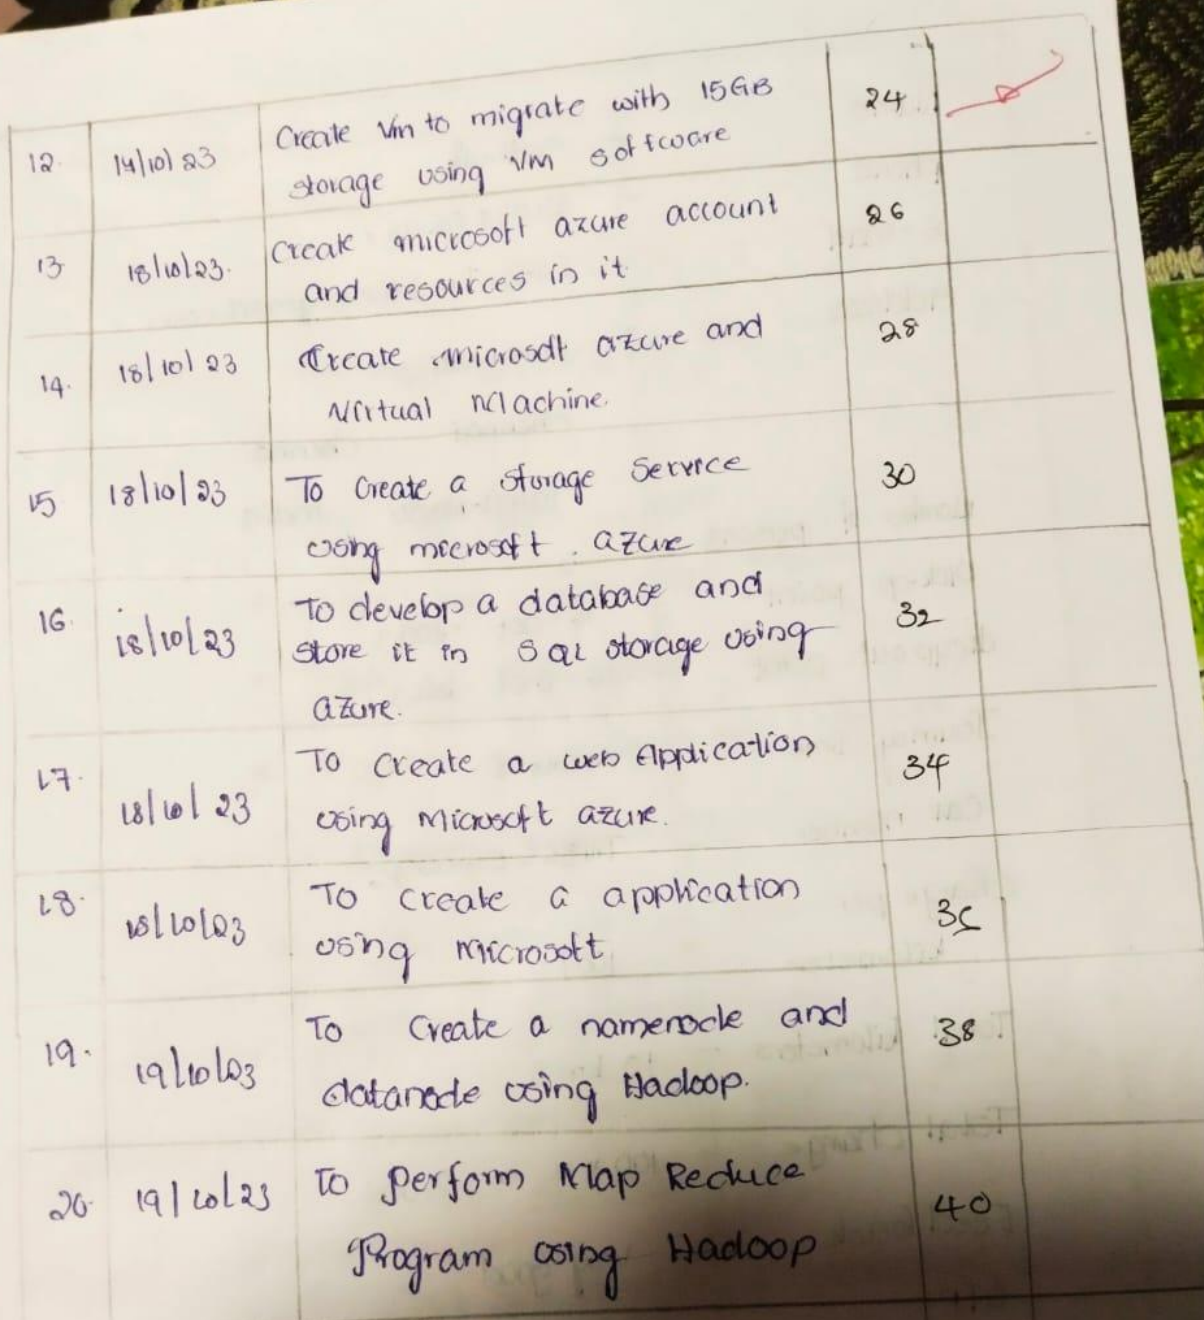 12. 14/10/23 Create Vm to migrate with 15GB 24
storage using VM software
13. 18/10/23. Create microsoft azure account 26
and resources in it
14. 18/10/23 Create microsoft azure and 28
Virtual Machine.
15 18/10/23 To Create a storage service 30
using microsoft azure
16. 18/10/23 To develop a database and 32
store it in SQL storage using
azure.
17. 18/10/23 To Create a web Application 34
using Microsoft azure.
18. 18/10/23 To create a application 36
using Microsoft
19. 19/10/23 To Create a namenode and 38
datanode using Hadoop.
20. 19/10/23 To perform Map Reduce 40
Program using Hadoop